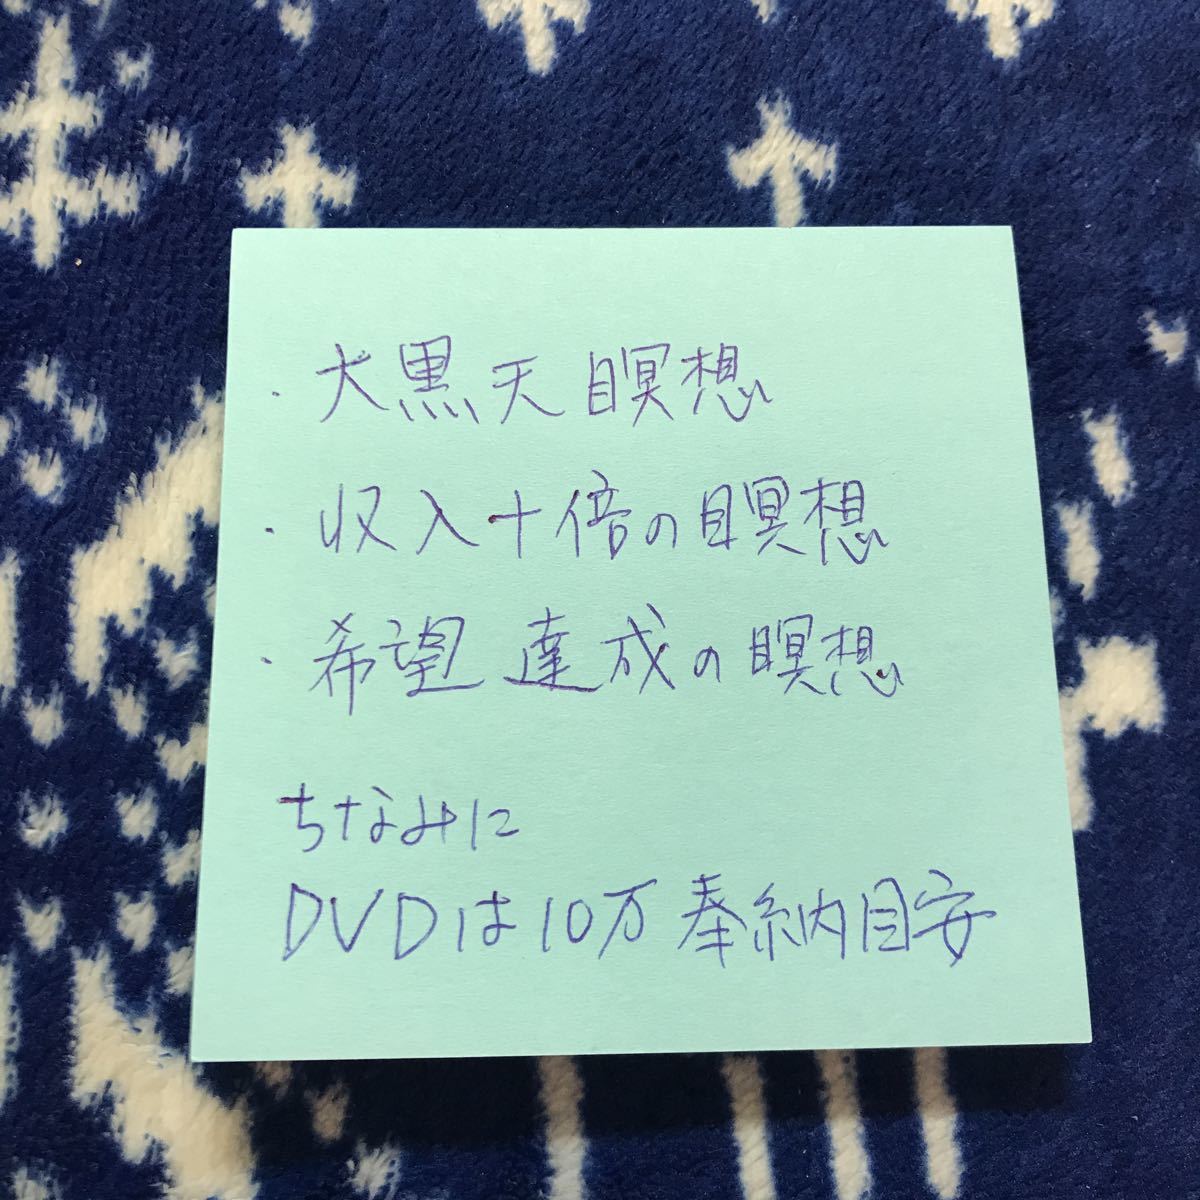 ・大黒天瞑想
・収入十倍の瞑想
・希望達成の瞑想
ちなみに
DVDは10万奉納目安